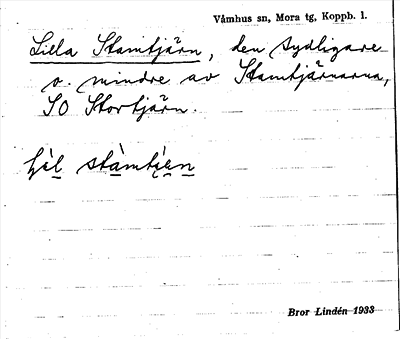 Våmhus sn, Mora tg, Koppb. l.
Lilla Stamtjärn, den sydligare
o. mindre av Stamtjärnarna,
SO Stortjärn.
Bror Lindén 1933